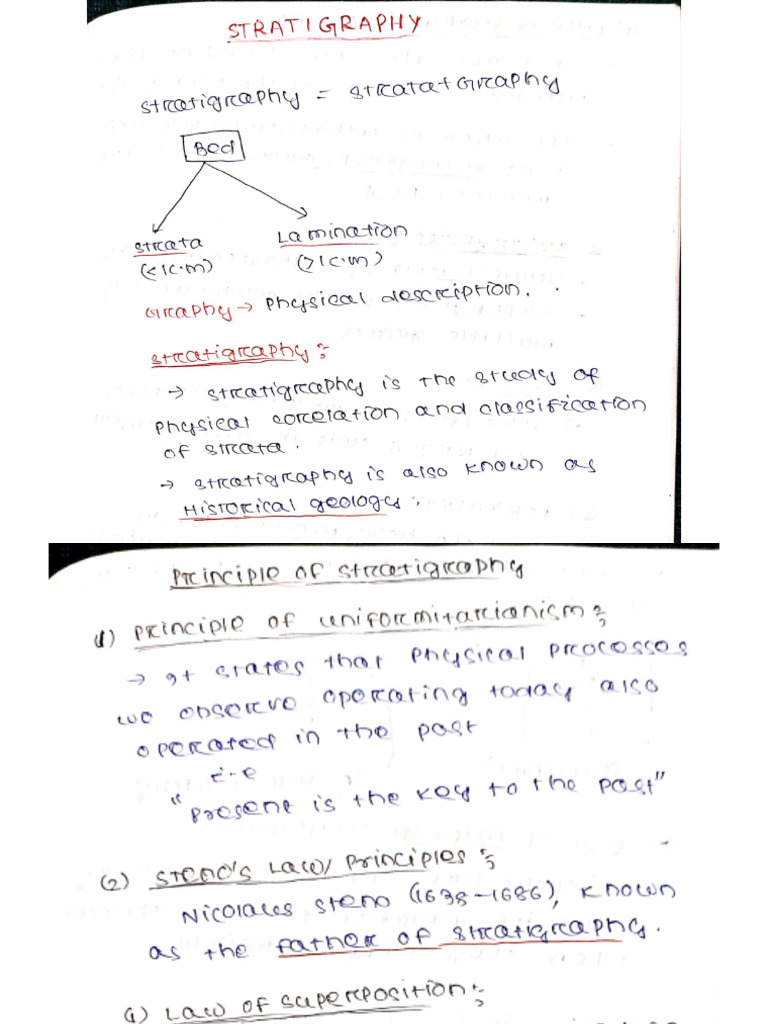 STRATIGRAPHY
Stratigraphy = Strata+Graphy
Bed
Strata
Lamination
(<1c.m)
(>1c.m)
Graphy → Physical description.
Stratigraphy:
→ Stratigraphy is the study of
physical corelation and classification
of strata.
→ Stratigraphy is also known as
Historical geology.
Principle of Stratigraphy
(1) Principle of uniformitarianism:
→ It states that physical processes
we observe operating today also
operated in the past
i.e
"Present is the key to the past"
(2) Steno's Law/Principles:
Nicolaus Steno (1638-1686), known
as the father of stratigraphy.
(1) Law of superposition: